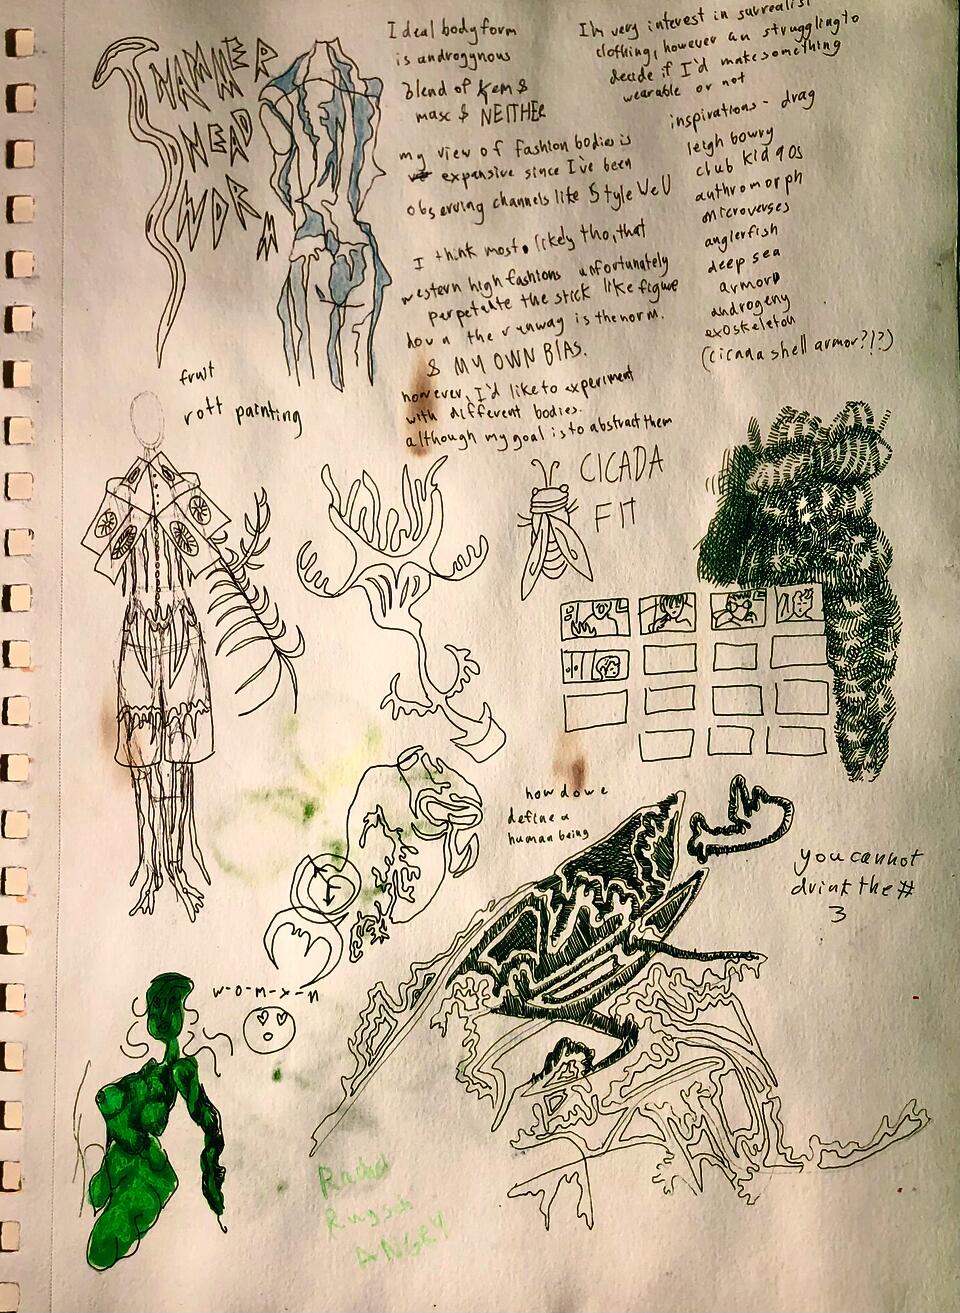 HAMMER
HEAD
WORM
Ideal bodyform
is androgynous
blend of fem &
masc & NEITHER
my view of fashion bodies is
expansive since I've been
observing channels like Style
I think most likely tho, that
western high fashions unfortunately
perpetuate the stick like figure
down the runway is the norm.
& MY OWN BIAS.
however, I'd like to experiment
with different bodies.
although my goal is to abstract them
I'm very interest in surrealist
clothing, however am struggling to
decide if I'd make something
wearable or not
inspirations - drag
leigh bowry
club kid 90s
anthromorph
microverses
anglerfish
deep sea
armor
androgeny
exoskeleton
(cicada shell armor?!?)
fruit
rott painting
CICADA
FIT
how do we
define a
human being
you cannot
drink the #
3
w-o-m-x-n
ANGRY